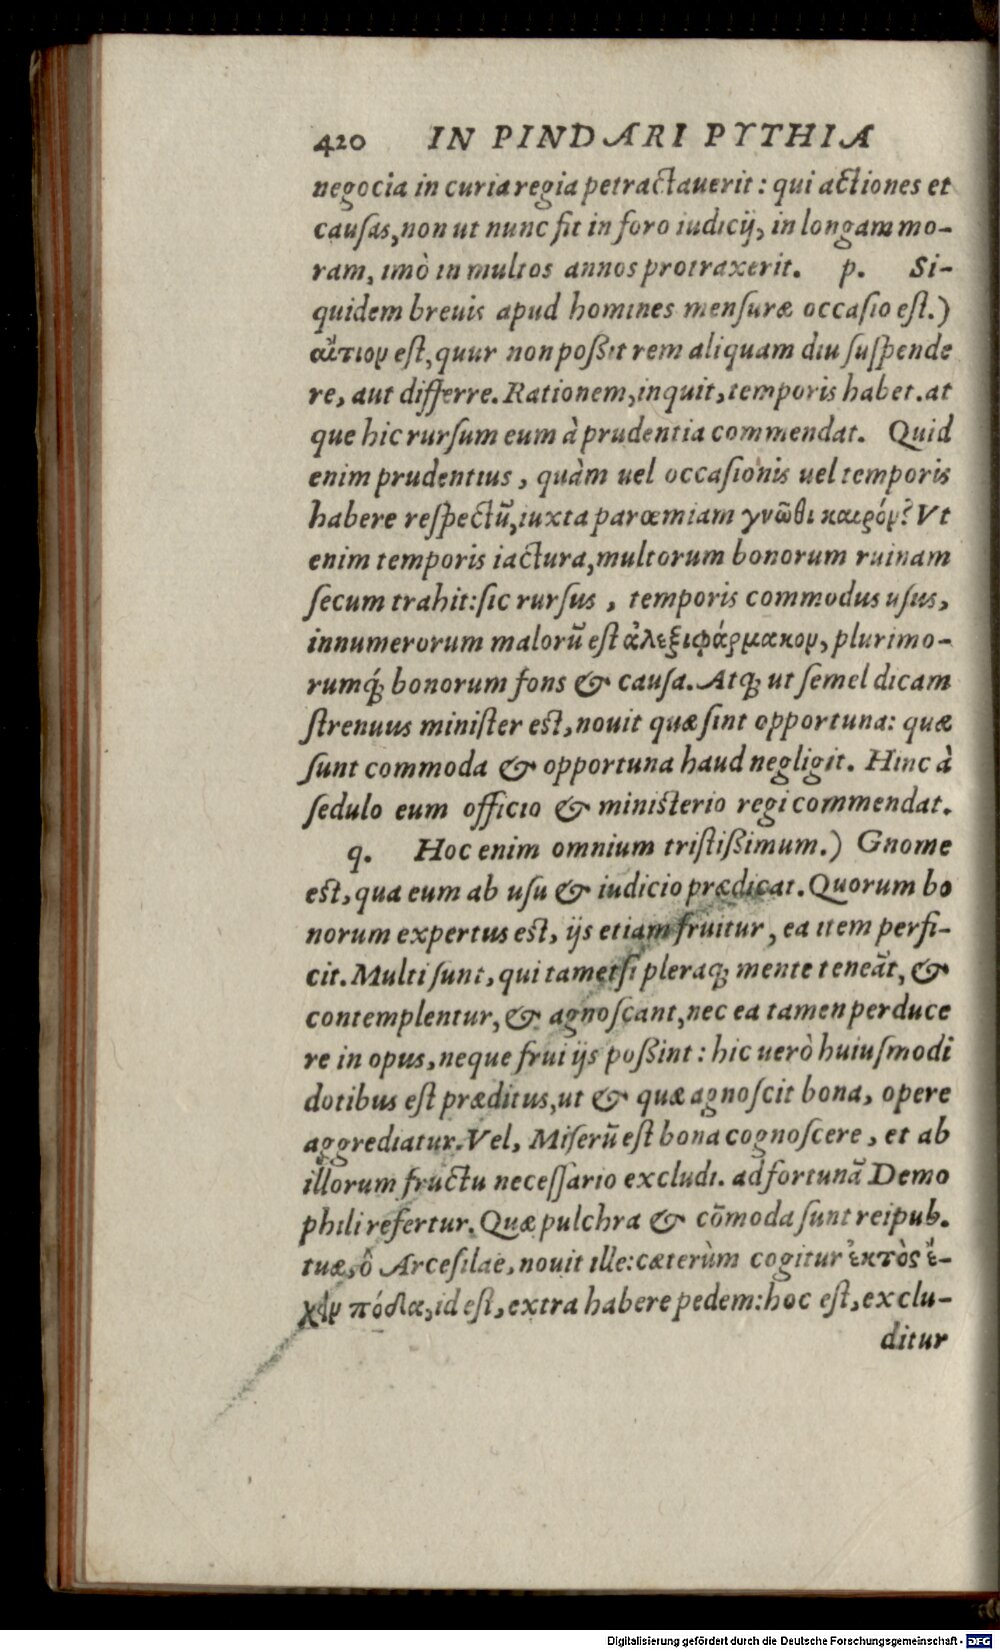 420 IN PINDARI PYTHIA
negocia in curia regia petractauerit: qui actiones et
causas, non ut nunc fit in foro iudicij, in longam mo-
ram, imò in multos annos protraxerit. p. Si-
quidem breuis apud homines mensuræ occasio est.)
αἴτιον est, quur non poßit rem aliquam diu suspende
re, aut differre. Rationem, inquit, temporis habet. at
que hic rursum eum à prudentia commendat. Quid
enim prudentius, quàm uel occasionis uel temporis
habere respectū, iuxta parœmiam γνῶθι καιρόν? Vt
enim temporis iactura, multorum bonorum ruinam
secum trahit: sic rursus, temporis commodus usus,
innumerorum malorū est ἀλεξιφάρμακον, plurimo-
rumq́; bonorum fons & causa. Atq; ut semel dicam
strenuus minister est, nouit quæ sint opportuna: quæ
sunt commoda & opportuna haud negligit. Hinc à
sedulo eum officio & ministerio regi commendat.
q. Hoc enim omnium tristißimum.) Gnome
est, qua eum ab usu & iudicio prædicat. Quorum bo
norum expertus est, ijs etiam fruitur, ea item perfi-
cit. Multi sunt, qui tametsi pleraq; mente teneāt, &
contemplentur, & agnoscant, nec ea tamen perduce
re in opus, neque frui ijs poßint: hic uerò huiusmodi
dotibus est præditus, ut & quæ agnoscit bona, opere
aggrediatur. Vel, Miserū est bona cognoscere, et ab
illorum fructu necessario excludi. ad fortunā Demo
phili refertur. Quæ pulchra & cōmoda sunt reipub.
tuæ, ô Arcesilae, nouit ille: cæterùm cogitur ἐκτὸς ἔ-
χειν πόδα, id est, extra habere pedem: hoc est, exclu-
ditur
Digitalisierung gefördert durch die Deutsche Forschungsgemeinschaft - DFG